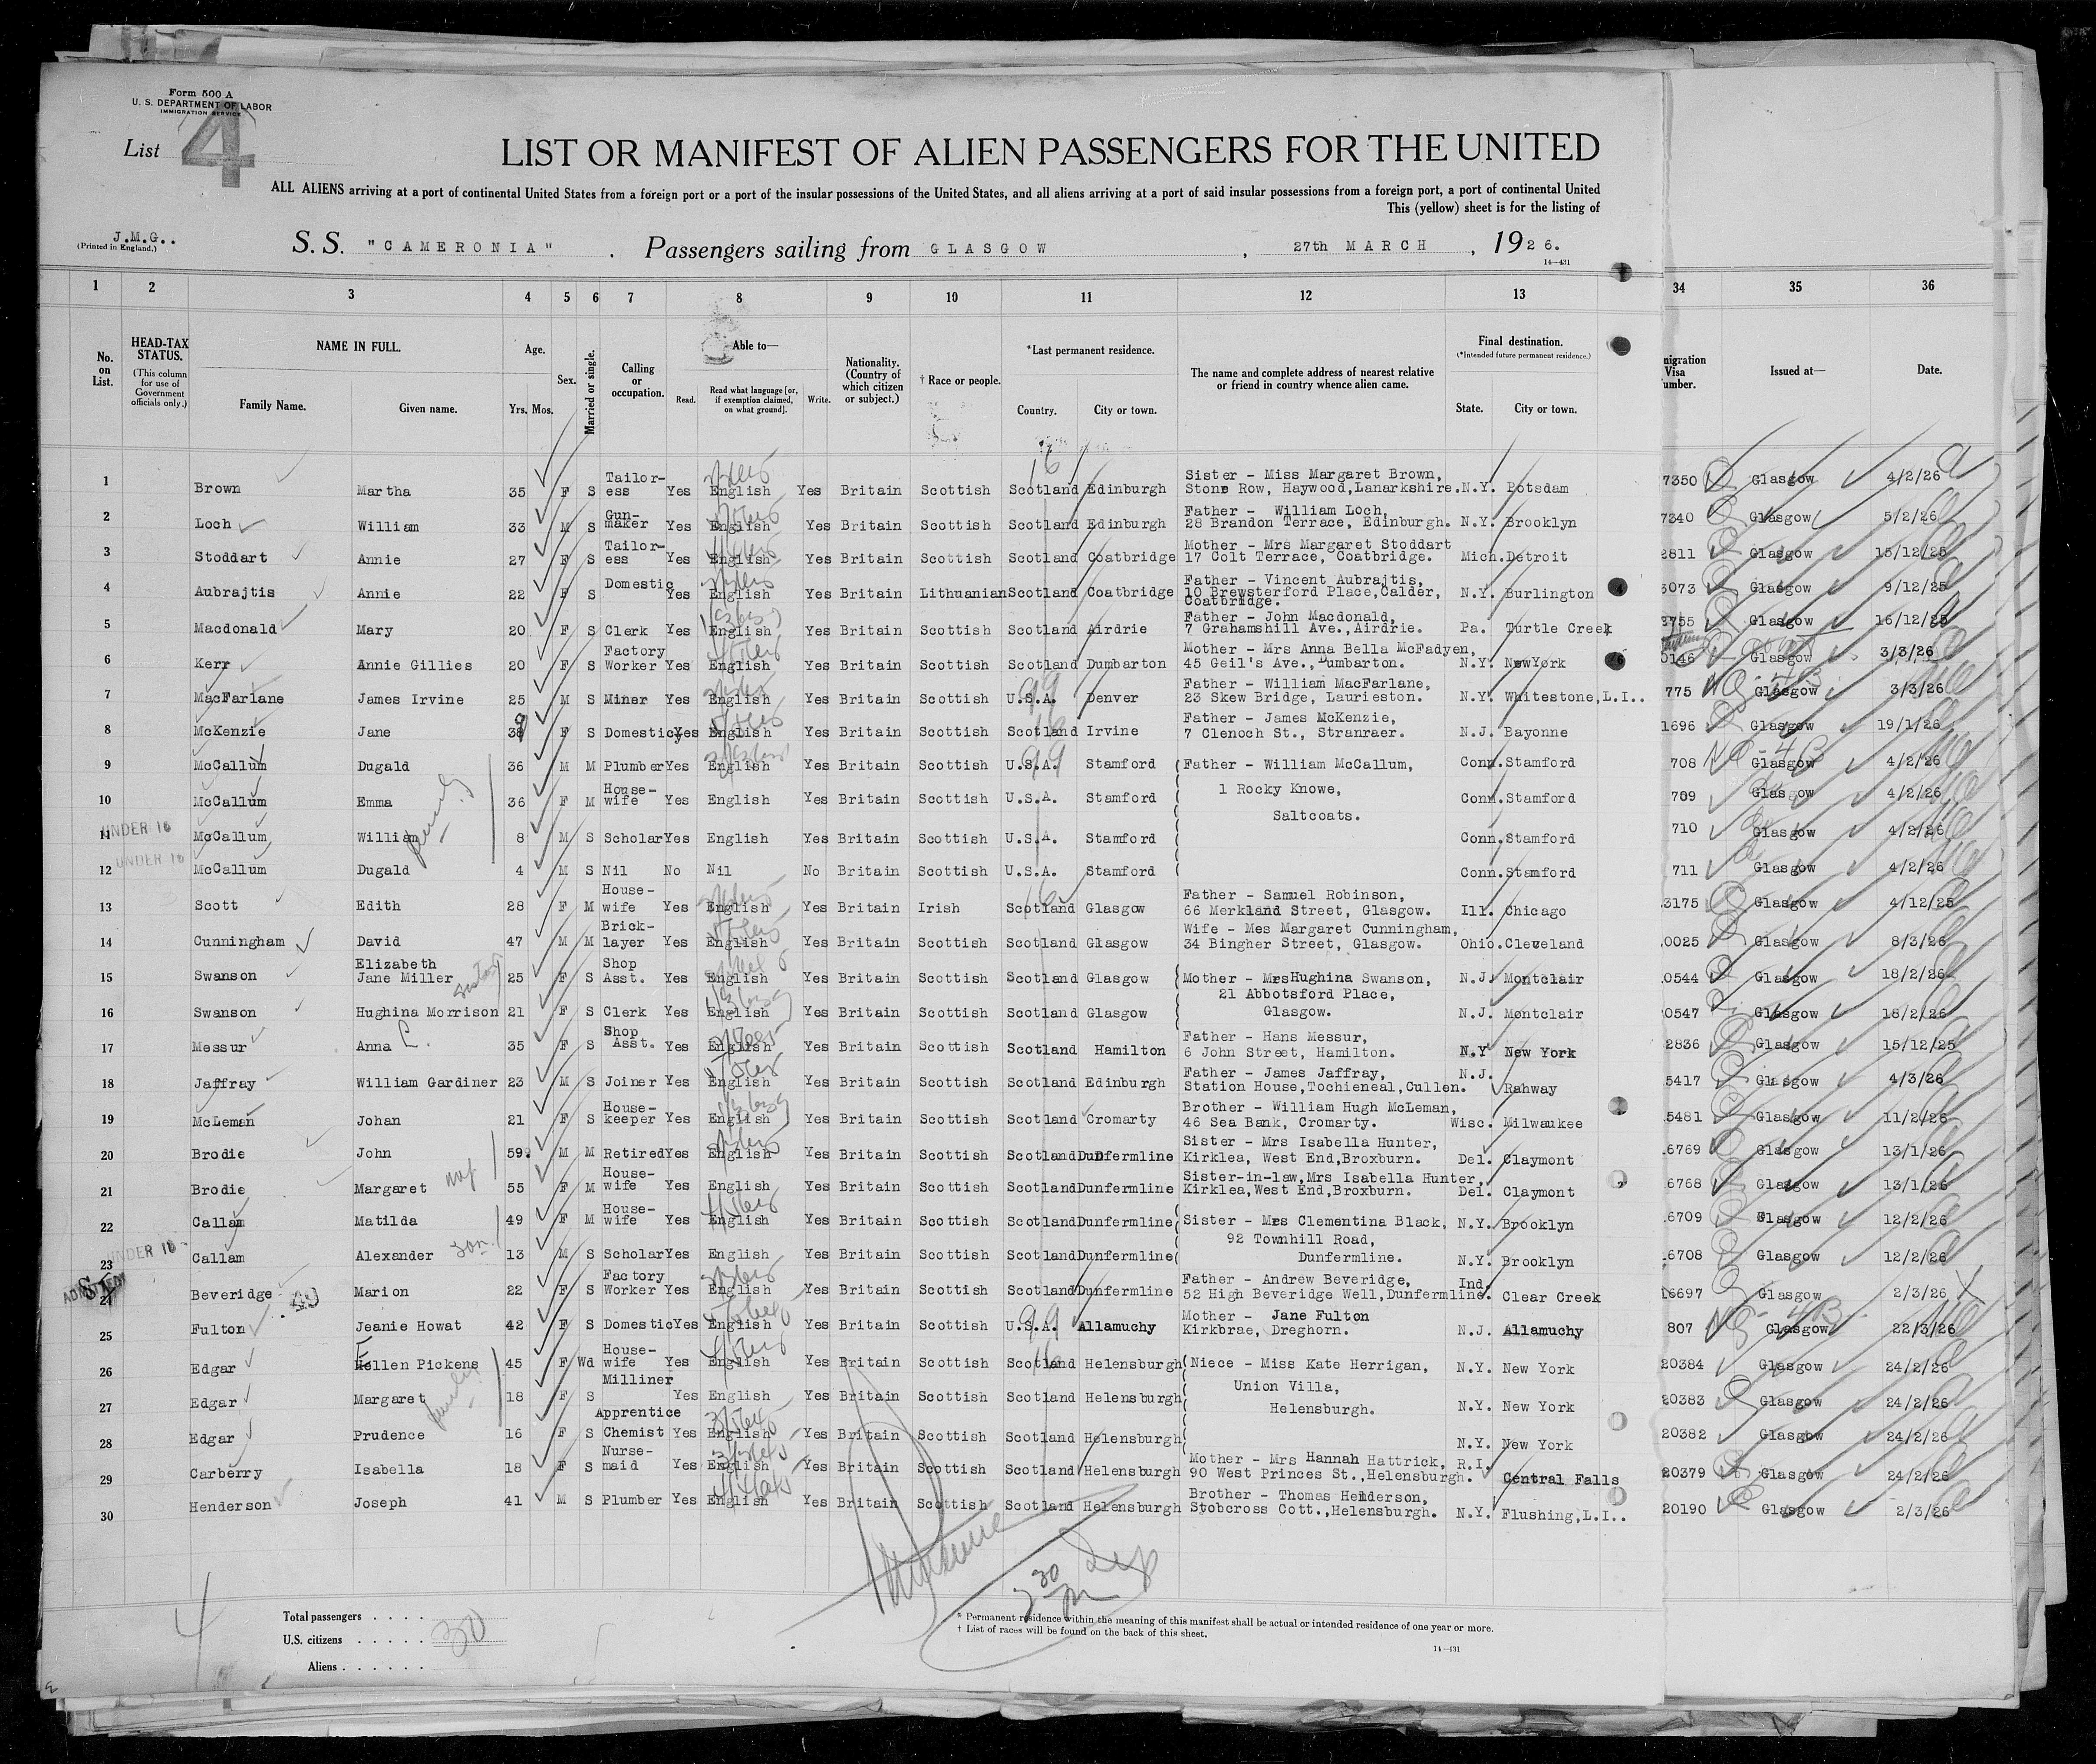 Form 500 A
U. S. DEPARTMENT OF LABOR
IMMIGRATION SERVICE
List 4
LIST OR MANIFEST OF ALIEN PASSENGERS FOR THE UNITED
ALL ALIENS arriving at a port of continental United States from a foreign port or a port of the insular possessions of the United States, and all aliens arriving at a port of said insular possessions from a foreign port, a port of continental United
This (yellow) sheet is for the listing of
J.M.G..
(Printed in England.)
S. S. "CAMERONIA" . Passengers sailing from GLASGOW , 27th MARCH , 1926.
14—431
1 2 3 4 5 6 7 8 9 10 11 12 13 34 35 36
No. on List. HEAD-TAX STATUS. (This column for use of Government officials only.) NAME IN FULL. Family Name. Given name. Age. Yrs. Mos. Sex. Married or single. Calling or occupation. Able to— Read. Read what language [or, if exemption claimed, on what ground]. Write. Nationality. (Country of which citizen or subject.) † Race or people. *Last permanent residence. Country. City or town. The name and complete address of nearest relative or friend in country whence alien came. Final destination. (*Intended future permanent residence.) State. City or town. migration Visa umber. Issued at— Date.
1 Brown Martha 35 F S Tailor-ess Yes English Yes Britain Scottish Scotland Edinburgh Sister - Miss Margaret Brown, Stone Row, Haywood,Lanarkshire. N.Y. Potsdam 7350 Glasgow 4/2/26
2 Loch William 33 M S Gun-maker Yes English Yes Britain Scottish Scotland Edinburgh Father - William Loch, 28 Brandon Terrace, Edinburgh. N.Y. Brooklyn 7340 Glasgow 5/2/26
3 Stoddart Annie 27 F S Tailor-ess Yes English Yes Britain Scottish Scotland Coatbridge Mother - Mrs Margaret Stoddart 17 Colt Terrace, Coatbridge. Mich. Detroit 2811 Glasgow 15/12/25
4 Aubrajtis Annie 22 F S Domestic Yes English Yes Britain Lithuanian Scotland Coatbridge Father - Vincent Aubrajtis, 10 Brewsterford Place,Calder, Coatbridge. N.Y. Burlington 3073 Glasgow 9/12/25
5 Macdonald Mary 20 F S Clerk Yes English Yes Britain Scottish Scotland Airdrie Father - John Macdonald, 7 Grahamshill Ave.,Airdrie. Pa. Turtle Creek 3755 Glasgow 16/12/25
6 Kerr Annie Gillies 20 F S Factory Worker Yes English Yes Britain Scottish Scotland Dumbarton Mother - Mrs Anna Bella McFadyen, 45 Geil's Ave., Dumbarton. N.Y. NewYork 0146 Glasgow 3/3/26
7 MacFarlane James Irvine 25 M S Miner Yes English Yes Britain Scottish U.S.A. Denver Father - William MacFarlane, 23 Skew Bridge, Laurieston. N.Y. Whitestone,L.I.. 775 Glasgow 3/3/26
8 McKenzie Jane 39 F S Domestic Yes English Yes Britain Scottish Scotland Irvine Father - James McKenzie, 7 Clenoch St., Stranraer. N.J. Bayonne 1696 Glasgow 19/1/26
9 McCallum Dugald 36 M M Plumber Yes English Yes Britain Scottish U.S.A. Stamford Father - William McCallum, Conn. Stamford 708 Glasgow 4/2/26
10 McCallum Emma 36 F M House-wife Yes English Yes Britain Scottish U.S.A. Stamford 1 Rocky Knowe, Conn. Stamford 709 Glasgow 4/2/26
UNDER 16
11 McCallum William 8 M S Scholar Yes English Yes Britain Scottish U.S.A. Stamford Saltcoats. Conn. Stamford 710 Glasgow 4/2/26
UNDER 16
12 McCallum Dugald 4 M S Nil No Nil No Britain Scottish U.S.A. Stamford Conn. Stamford 711 Glasgow 4/2/26
13 Scott Edith 28 F M House-wife Yes English Yes Britain Irish Scotland Glasgow Father - Samuel Robinson, 66 Merkland Street, Glasgow. Ill. Chicago 3175 Glasgow 4/12/25
14 Cunningham David 47 M M Brick-layer Yes English Yes Britain Scottish Scotland Glasgow Wife - Mes Margaret Cunningham, 34 Bingher Street, Glasgow. Ohio. Cleveland 0025 Glasgow 8/3/26
15 Swanson Elizabeth Jane Miller 25 F S Shop Asst. Yes English Yes Britain Scottish Scotland Glasgow Mother - Mrs Hughina Swanson, N.J. Montclair 0544 Glasgow 18/2/26
21 Abbotsford Place,
16 Swanson Hughina Morrison 21 F S Clerk Yes English Yes Britain Scottish Scotland Glasgow Glasgow. N.J. Montclair 0547 Glasgow 18/2/26
17 Messur Anna C. 35 F S Shop Asst. Yes English Yes Britain Scottish Scotland Hamilton Father - Hans Messur, 6 John Street, Hamilton. N.Y New York 2836 Glasgow 15/12/25
18 Jaffray William Gardiner 23 M S Joiner Yes English Yes Britain Scottish Scotland Edinburgh Father - James Jaffray, Station House,Tochieneal,Cullen. N.J. Rahway 5417 Glasgow 4/3/26
19 McLeman Johan 21 F S House-keeper Yes English Yes Britain Scottish Scotland Cromarty Brother - William Hugh McLeman, 46 Sea Bank, Cromarty. Wisc. Milwaukee 5481 Glasgow 11/2/26
20 Brodie John 59 M M Retired Yes English Yes Britain Scottish Scotland Dunfermline Sister - Mrs Isabella Hunter, Kirklea, West End,Broxburn. Del. Claymont 6769 Glasgow 13/1/26
21 Brodie Margaret 55 F M House-wife Yes English Yes Britain Scottish Scotland Dunfermline Sister-in-law,Mrs Isabella Hunter, Kirklea,West End,Broxburn. Del. Claymont 6768 Glasgow 13/1/26
22 Callam Matilda 49 F M House-wife Yes English Yes Britain Scottish Scotland Dunfermline Sister - Mrs Clementina Black, N.Y. Brooklyn 6709 Glasgow 12/2/26
92 Townhill Road,
UNDER 16
23 Callam Alexander son. 13 M S Scholar Yes English Yes Britain Scottish Scotland Dunfermline Dunfermline. N.Y. Brooklyn 6708 Glasgow 12/2/26
ADMITTED
24 Beveridge Marion 22 F S Factory Worker Yes English Yes Britain Scottish Scotland Dunfermline Father - Andrew Beveridge, 52 High Beveridge Well,Dunfermline. Ind. Clear Creek 16697 Glasgow 2/3/26 X
25 Fulton Jeanie Howat 42 F S Domestic Yes English Yes Britain Scottish U.S.A. Allamuchy Mother - Jane Fulton Kirkbrae, Dreghorn. N.J. Allamuchy 807 Glasgow 22/3/26
26 Edgar Hellen Pickens 45 F Wd House-wife Yes English Yes Britain Scottish Scotland Helensburgh Niece - Miss Kate Herrigan, N.Y. New York 20384 Glasgow 24/2/26
27 Edgar Margaret 18 F S Milliner Yes English Yes Britain Scottish Scotland Helensburgh Union Villa, Helensburgh. N.Y. New York 20383 Glasgow 24/2/26
28 Edgar Prudence 16 F S Apprentice Chemist Yes English Yes Britain Scottish Scotland Helensburgh N.Y. New York 20382 Glasgow 24/2/26
29 Carberry Isabella 18 F S Nurse-maid Yes English Yes Britain Scottish Scotland Helensburgh Mother - Mrs Hannah Hattrick, 90 West Princes St.,Helensburgh. R.I. Central Falls 20379 Glasgow 24/2/26
30 Henderson Joseph 41 M S Plumber Yes English Yes Britain Scottish Scotland Helensburgh Brother - Thomas Henderson, Stobcross Cott.,Helensburgh. N.Y. Flushing,L.I.. 20190 Glasgow 2/3/26
4
Total passengers . . . .
U.S. citizens . . . . . 30
Aliens . . . . . .
* Permanent residence within the meaning of this manifest shall be actual or intended residence of one year or more.
† List of races will be found on the back of this sheet.
14—431